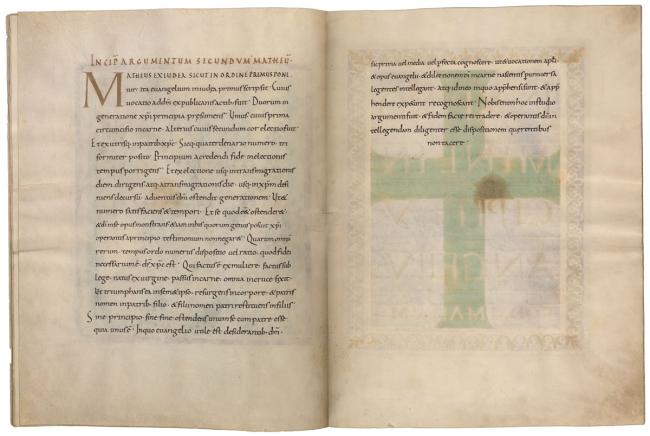 INCIP̄ ARGUMENTUM SECUNDUM MATHEŪ
MATHEUS EXIUDEA SICUT IN ORDINE PRIMUS PONI
tur; ita evangelium iniudea primus scripsit · Cuius
vocatio addm̄ expublicanis actib; fuit · Duorum in
generatione xp̄i principia presumens · Unius cuius prima
circumcisio in carne · Alterius cuius secundum cor electio fuit
Et ex utrisq; in patrib; xp̄s · Sicq; quaternario numero tri
formiter posito · Principium a credendi fide in electionis
tempus porrigens · Et ex electione usq; in transmigrationis
diem dirigens atq; a transmigrationis die · usq; in xp̄m defi
niens decursū · adventus dn̄i ostendit generationem · Ut &
numero satisfaciens & tempori · Et se quod esset ostenderet ·
& dī in se opus monstrans & iam in his quorum genus posuit xp̄i
operantis a principio testimonium non negaret · Quarum omniū
rerum · tempus ordo numerus dispositio vel ratio · quod fidei
necessarium ē · ds̄ xp̄s est · Qui factus ē ex muliere · factus sub
lege · natus ex virgine · passus in carne · omnia in cruce · fixit ·
ut triumphans ea in semet ipso · resurgens in corpore · & patris
nomen in patrib; filio · & filii nomen patri restituens in filiis ·
Sine principio · sine fine · ostendens unum se cum patre esse ·
quia unus ē · In quo evangelio utile est desiderantib; dm̄ ·
sic prima vel media vel perfecta cognoscere · ut & vocationem apli
& opus evangelii · & dilectionem dī in carne nascentis per universa
legentes intellegant · atq; id in eo in quo apprehensi sunt · & app
hendere expetunt recognoscant · Nobis enim hoc in studio
argumenti fuit · & fidem factae rei tradere · & operantis dī in
tellegendam diligenter esse dispositionem querentibus
non tacere ·